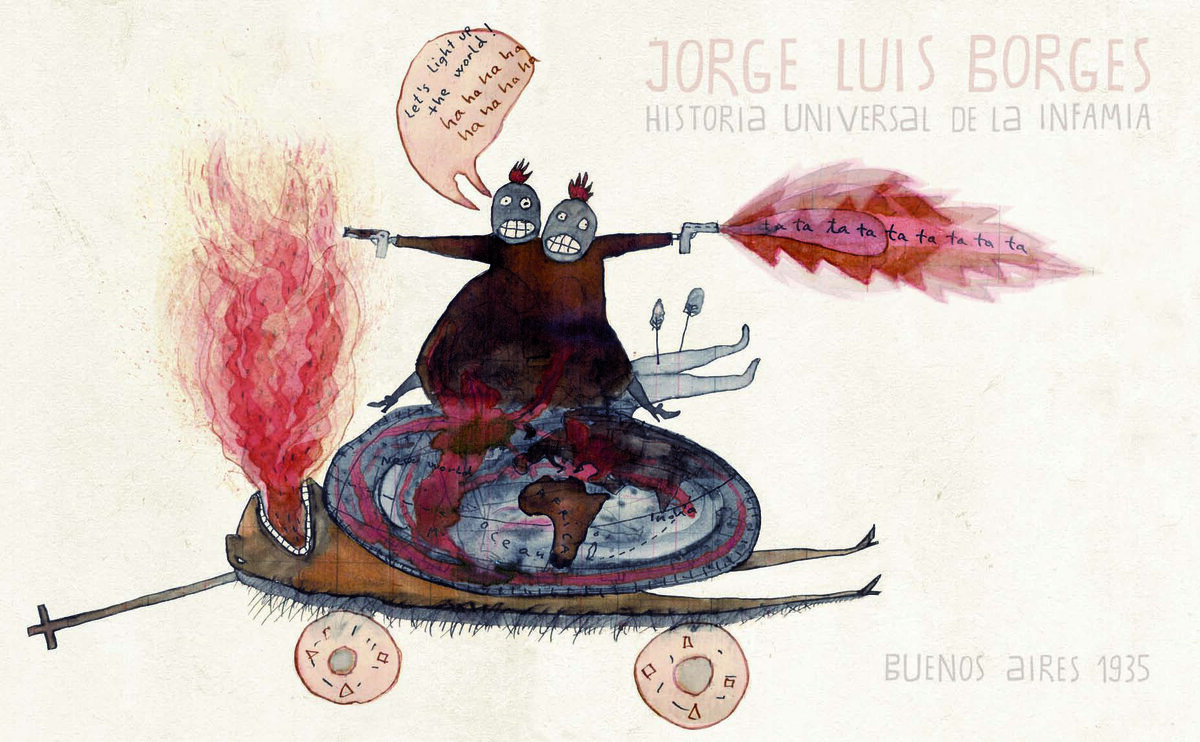 JORGE LUIS BORGES
HISTORIA UNIVERSAL DE LA INFAMIA
Let's light up
the world!
ha ha ha ha
ha ha ha ha
ta ta ta ta ta ta ta ta ta
New world
AFRICA
ocean
India
BUENOS AIRES 1935